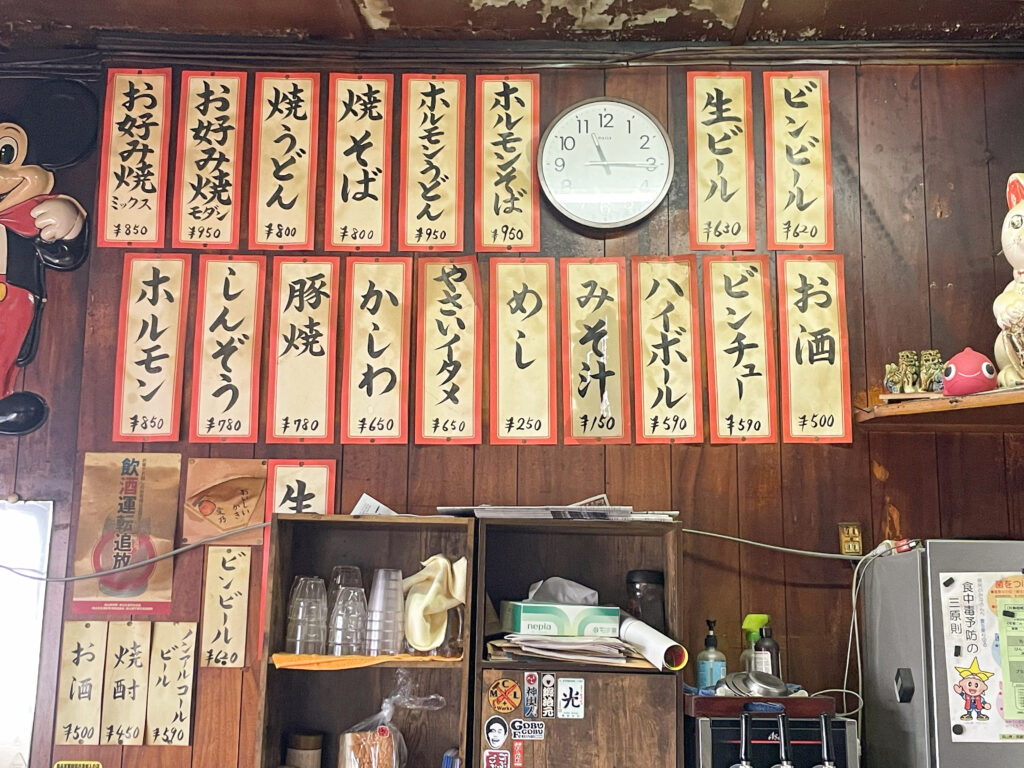 お好み焼
ミックス
¥850
お好み焼
モダン
¥950
焼うどん
¥800
焼そば
¥800
ホルモンうどん
¥950
ホルモンそば
¥950
生ビール
¥630
ビンビール
¥620
ホルモン
¥850
しんぞう
¥780
豚焼
¥780
かしわ
¥650
やさいイタメ
¥650
めし
¥250
みそ汁
¥150
ハイボール
¥590
ビンチュー
¥590
お酒
¥500
11 12 1
10 2
9 3
飲酒運転追放
生
ビンビール
¥620
お酒
¥500
焼酎
¥450
ノンアルコール
ビール
¥590
nepia
光
GOBU
GOBU
食中毒予防の
三原則